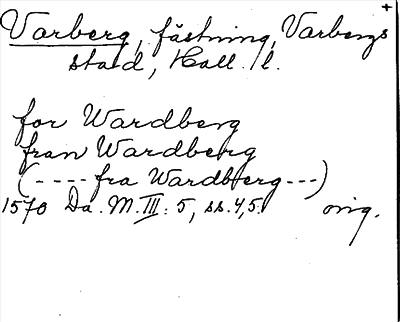 +
Varberg, fästning, Varbergs
stad, Hall. l.
for Wardberg
fran Wardberg
(----fra Wardberg---)
1570 Da. M. III: 5, ss. 4,5. orig.